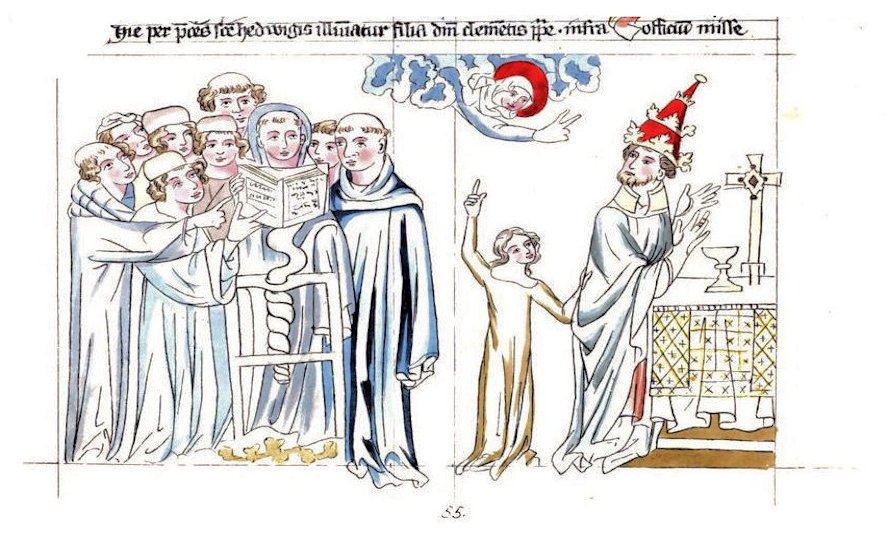 Hic per p̄ces sc̄e hedwigis illūinatur filia dn̄i clemētis p̄pe · infra officiū misse
55.